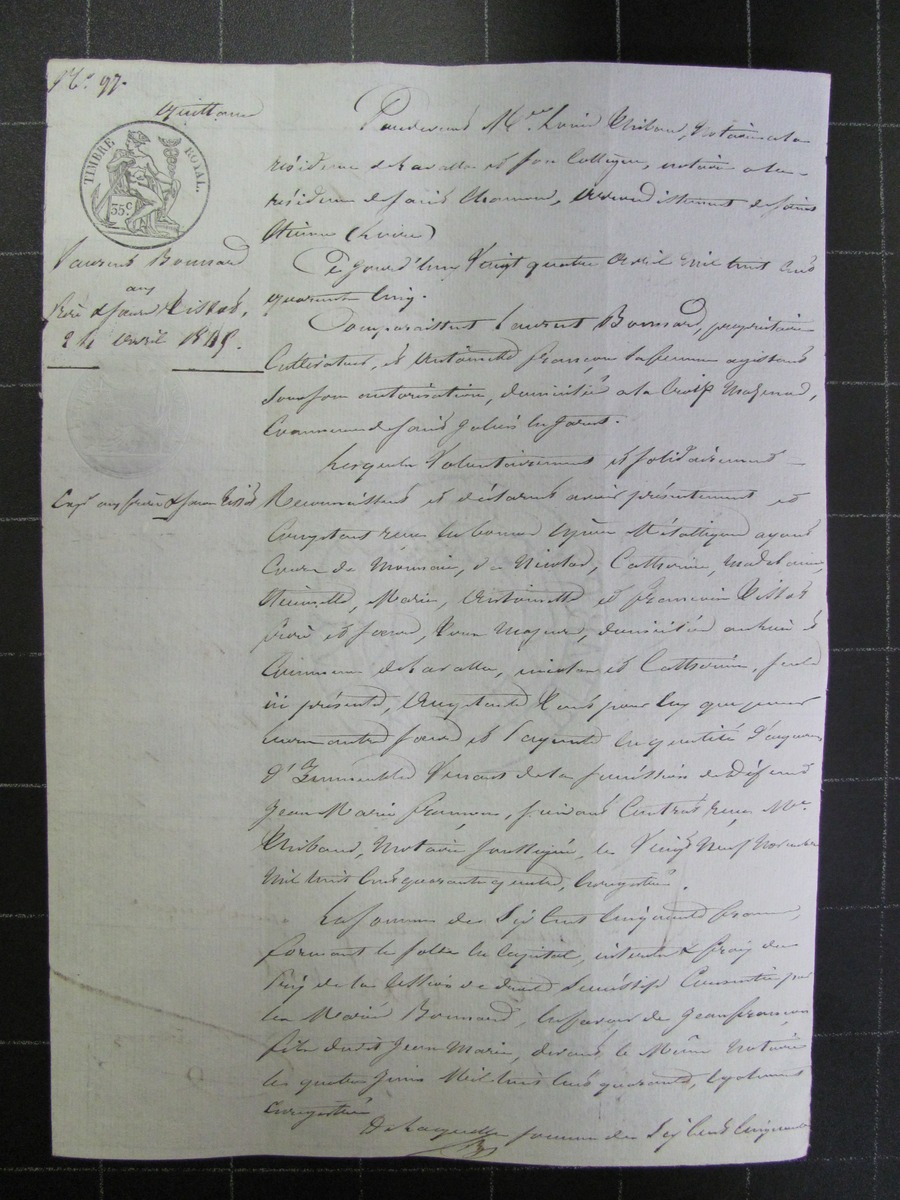 N.° 97.
Quittance
TIMBRE ROYAL.
35 c
Laurent Bonnard
aux
frère & soeurs Tissot,
24 avril 1845.
Exp. aux frère & soeurs Tissot
Pardevant Me Louis Thibaud, Notaire à la
résidence de Lavalla et son Collègue, notaire à la
résidence de Saint Chamond, arrondissement de Saint
Etienne (Loire)
Ce jourd'huy Vingt quatre avril mil huit cent
quarante cinq.
Comparaissent Laurent Bonnard, propriétaire
Cultivateur, et Antoinette françon, sa femme agissant
sous son autorisation, domiciliés à la Croix
Commune de Saint Julien en Jarret.
Lesquels Volontairement et solidairement
Reconnaissent et déclarent avoir présentement et
Comptant reçu en bonnes espèces Métalliques ayant
Cours de Monnaie, de Nicolas, Catherine, Madelaine,
Marie, Antoinette et françoise Tissot
frère et soeurs, tous Majeurs, domiciliés
Commune de Lavalla, nicolas et Catherine, seuls
ici présents, acceptants tant pour eux que pour
leurs autres soeurs et payants en qualité d'acquéreurs
d'Immeubles Venant de la succession de Défunt
Jean Marie françon, suivant Contrat reçu Me
Thibaud, Notaire soussigné, le Vingt Neuf Novembre
Mil huit Cent quarante quatre, Enregistré.
La somme de Six Cent Cinquante francs,
formant le solde en Capital, intérêts & frais du
prix de la Cession de droits Successifs Consentie par
les Mariés Bonnard, en faveur de Jean françon,
fils dudit Jean Marie, devant le Même Notaire
le quatre Juin Mil huit Cent quarante,
Enregistrée
De laquelle somme de Six Cent Cinquante